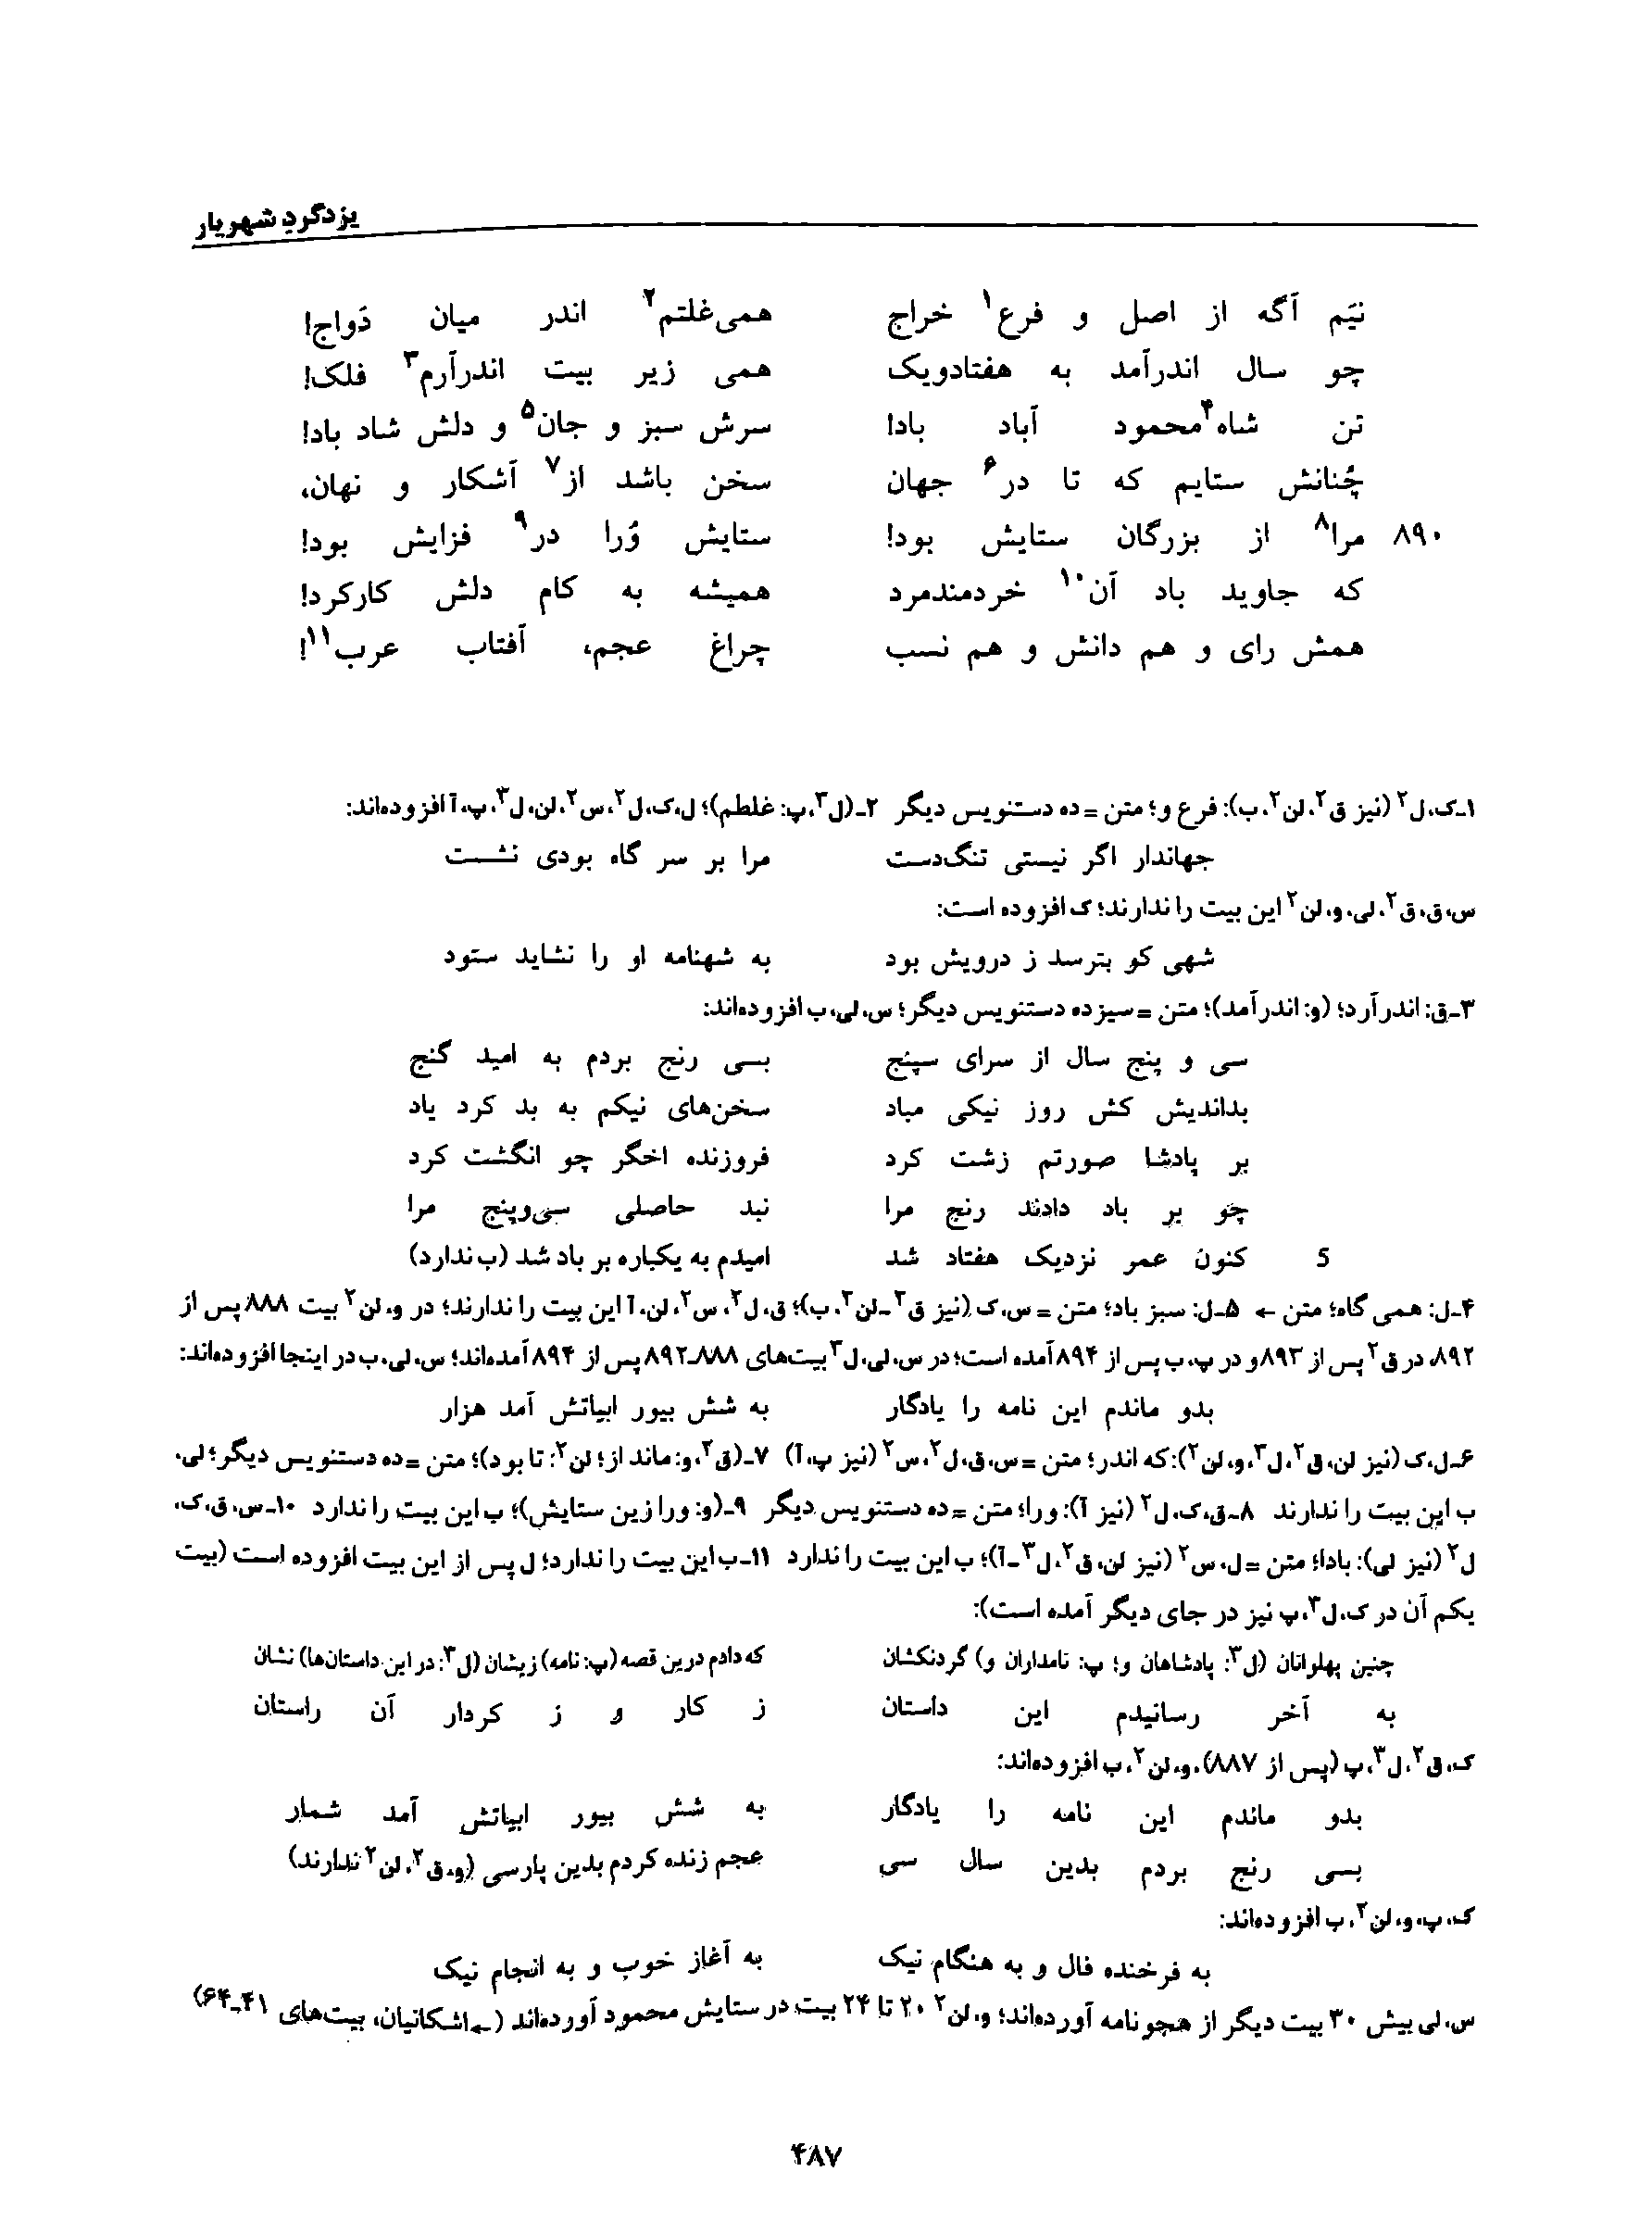 یزدگردِ شهریار
نیَم آگه از اصل و فرع۱ خراج همی‌غلتم۲ اندر میان دَواج!
چو سال اندرآمد به هفتادویک همی زیر بیت اندرآرم۳ فلک!
تن شاه۴ محمود آباد بادا! سرش سبز و جان۵ و دلش شاد بادا!
چُنانش ستایم که تا در۶ جهان سخن باشد از۷ آشکار و نهان،
۸۹۰ مرا۸ از بزرگان ستایش بود! ستایش وُرا در۹ فزایش بود!
که جاوید باد آن۱۰ خردمندمرد همیشه به کام دلش کارکرد!
همش رای و هم دانش و هم نسب چراغ عجم، آفتاب عرب۱۱!
۱ـ ک، ل۲ (نیز ق۲، لن۲، ب): فرع و؛ متن = ده دستنویس دیگر ۲ـ (ل۳، پ: غلطم)؛ ل، ک، ل۲، س۲، لن، ل۳، پ، آ افزوده‌اند:
جهاندار اگر نیستی تنگ‌دست مرا بر سر گاه بودی نشست
س، ق، ق۲، لی، و، لن۲ این بیت را ندارند؛ ک افزوده است:
شهی کو بترسد ز درویش بود به شهنامه او را نشاید ستود
۳ـ ق: اندرآرد؛ (و: اندرآمد)؛ متن = سیزده دستنویس دیگر؛ س، لی، ب افزوده‌اند:
سی و پنج سال از سرای سپنج بسی رنج بردم به امید گنج
بداندیش کش روز نیکی مباد سخن‌های نیکم به بد کرد یاد
بر پادشا صورتم زشت کرد فروزنده اخگر چو انگشت کرد
چو بر باد دادند رنج مرا نبد حاصلی سی‌وپنج مرا
5 کنون عمر نزدیک هفتاد شد امیدم به یکباره بر باد شد (ب ندارد)
۴ـ ل: همی گاه؛ متن ← ۵ـ ل: سبز باد؛ متن = س، ک (نیز ق۲ـ لن۲، ب)؛ ق، ل۲، س۲، لن، آ این بیت را ندارند؛ در و، لن۲ بیت ۸۸۸ پس از
۸۹۲، در ق۲ پس از ۸۹۳ و در پ، ب پس از ۸۹۴ آمده است؛ در س، لی، ل۳ بیت‌های ۸۸۸ـ۸۹۲ پس از ۸۹۴ آمده‌اند؛ س، لی، ب در اینجا افزوده‌اند:
بدو ماندم این نامه را یادگار به شش بیور ابیاتش آمد هزار
۶ـ ل، ک (نیز لن، ق۲، ل۳، و، لن۲): که اندر؛ متن = س، ق، ل۲، س۲ (نیز پ، آ) ۷ـ (ق۲، و: ماند از؛ لن۲: تا بود)؛ متن = ده دستنویس دیگر؛ لی،
ب این بیت را ندارند ۸ـ ق، ک، ل۲ (نیز آ): ورا؛ متن = ده دستنویس دیگر ۹ـ (و: ورا زین ستایش)؛ ب این بیت را ندارد ۱۰ـ س، ق، ک،
ل۲ (نیز لی): بادا؛ متن = ل، س۲ (نیز لن، ق۲، ل۳ـ آ)؛ ب این بیت را ندارد ۱۱ـ ب این بیت را ندارد؛ ل پس از این بیت افزوده است (بیت
یکم آن در ک، ل۳، پ نیز در جای دیگر آمده است):
چنین پهلوانان (ل۳: پادشاهان و؛ پ: نامداران و) گردنکشان که دادم درین قصه (پ: نامه) زیشان (ل۳: در این داستان‌ها) نشان
به آخر رسانیدم این داستان ز کار و ز کردار آن راستان
ک، ق۲، ل۳، پ (پس از ۸۸۷)، و، لن۲، ب افزوده‌اند:
بدو ماندم این نامه را یادگار به شش بیور ابیاتش آمد شمار
بسی رنج بردم بدین سال سی عجم زنده کردم بدین پارسی (و، ق۲، لن۲ ندارند)
ک، پ، و، لن۲، ب افزوده‌اند:
به فرخنده فال و به هنگام نیک به آغاز خوب و به انجام نیک
س، لی بیش ۳۰ بیت دیگر از هجونامه آورده‌اند؛ و، لن۲ ۲۰ تا ۲۴ بیت در ستایش محمود آورده‌اند (← اشکانیان، بیت‌های ۴۱ـ۶۴)
۴۸۷